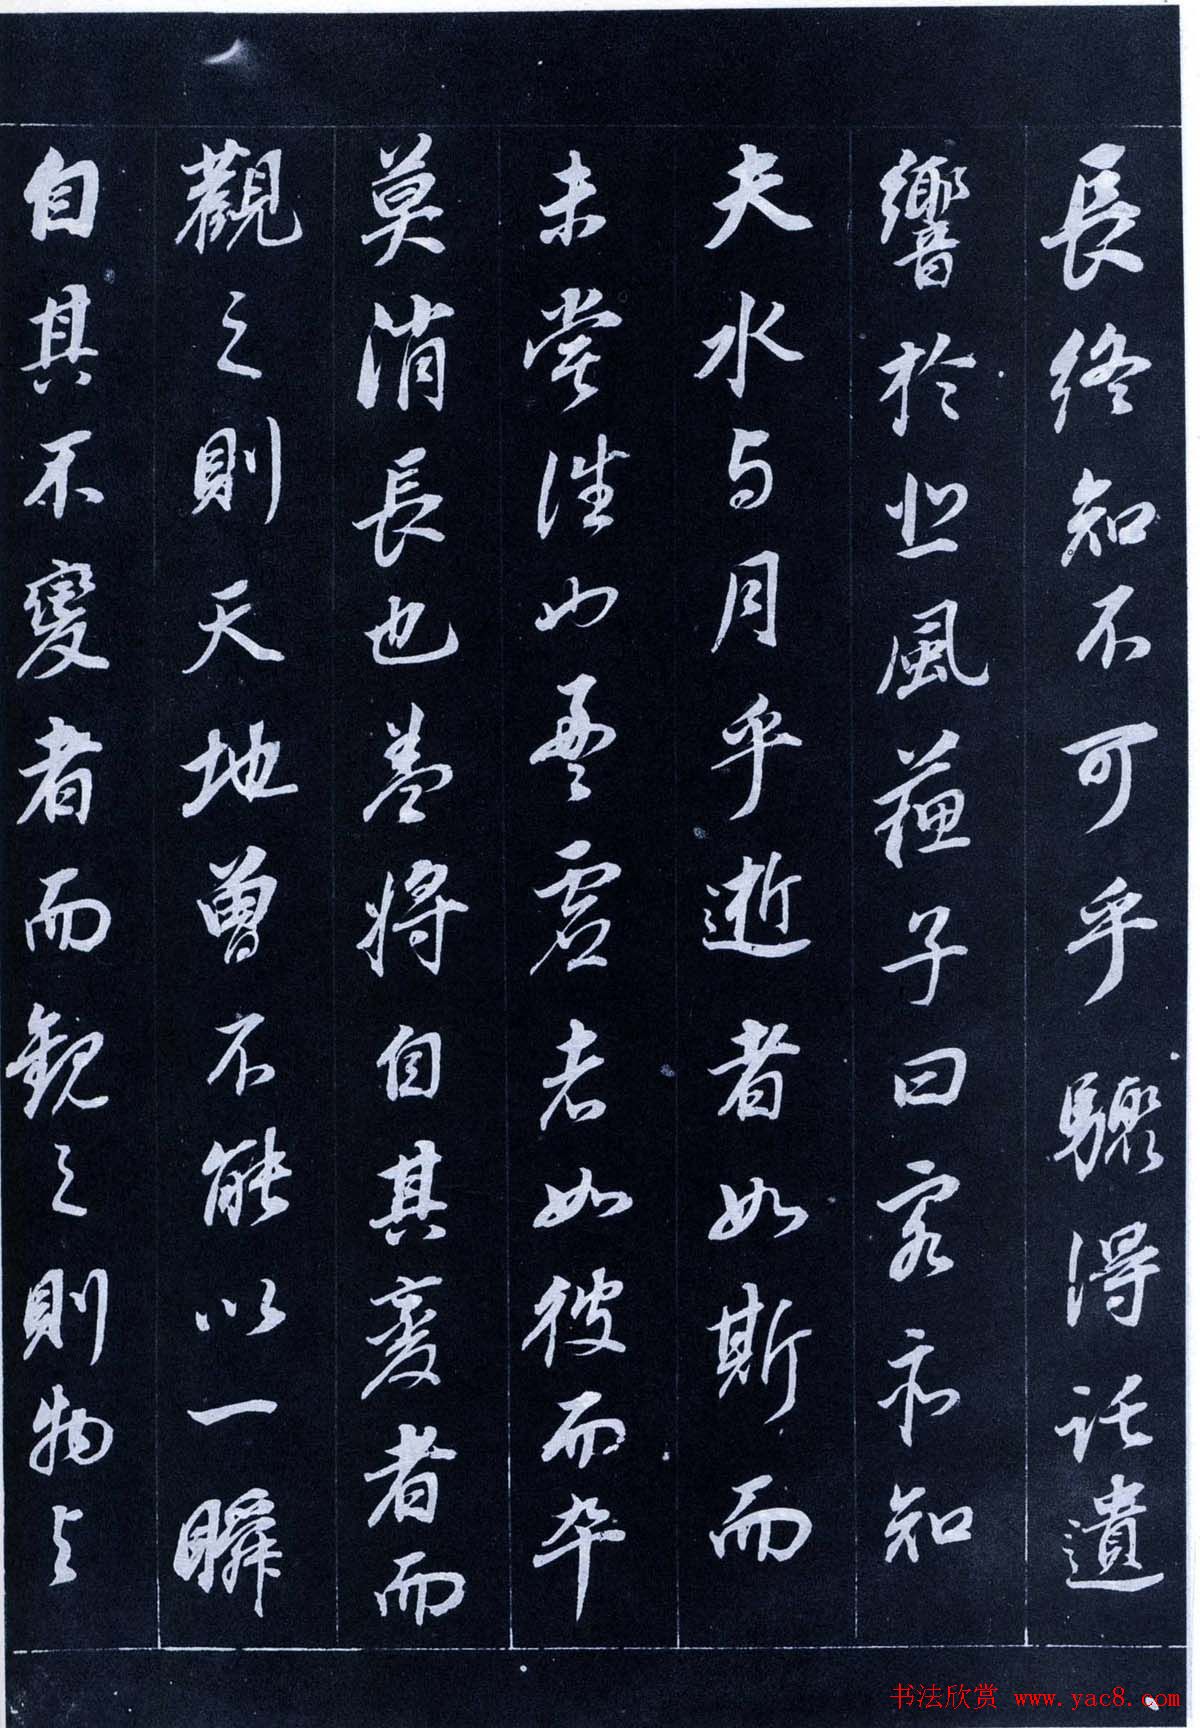 長終知不可乎驟得託遺
響於悲風蘇子曰客亦知
夫水与月乎逝者如斯而
未嘗往也盈虛者如彼而卒
莫消長也蓋將自其變者而
觀之則天地曾不能以一瞬
自其不變者而觀之則物与
书法欣赏 www.yac8.com